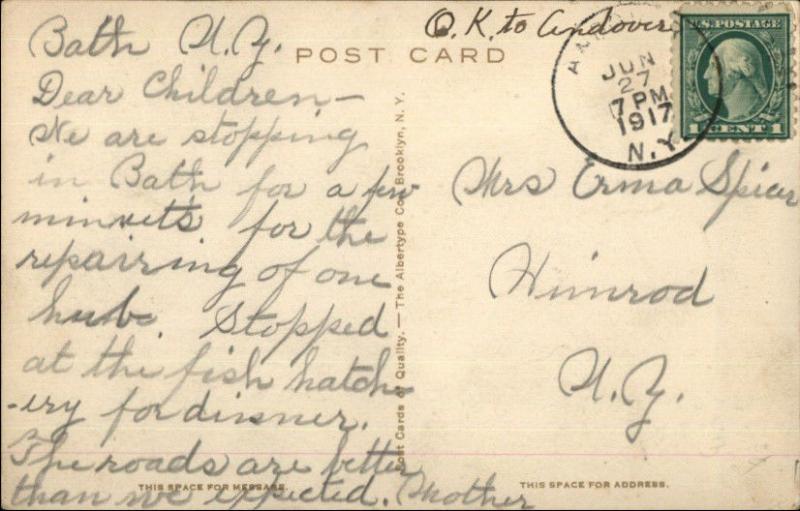 Bath N.Y.
POST CARD
O.K. to Andover
Dear Children—
We are stopping
in Bath for a few
minuets for the
repairing of one
hub. Stopped
at the fish hatch-
-ery for dinner.
The roads are better
than we expected. Mother
THIS SPACE FOR MESSAGE.
Post Cards of Quality. — The Albertype Co., Brooklyn, N. Y.
JUN
27
7 PM
1917
N.Y.
U.S. POSTAGE
1 CENT 1
Mrs Erma Spicer
Himrod
N.Y.
THIS SPACE FOR ADDRESS.